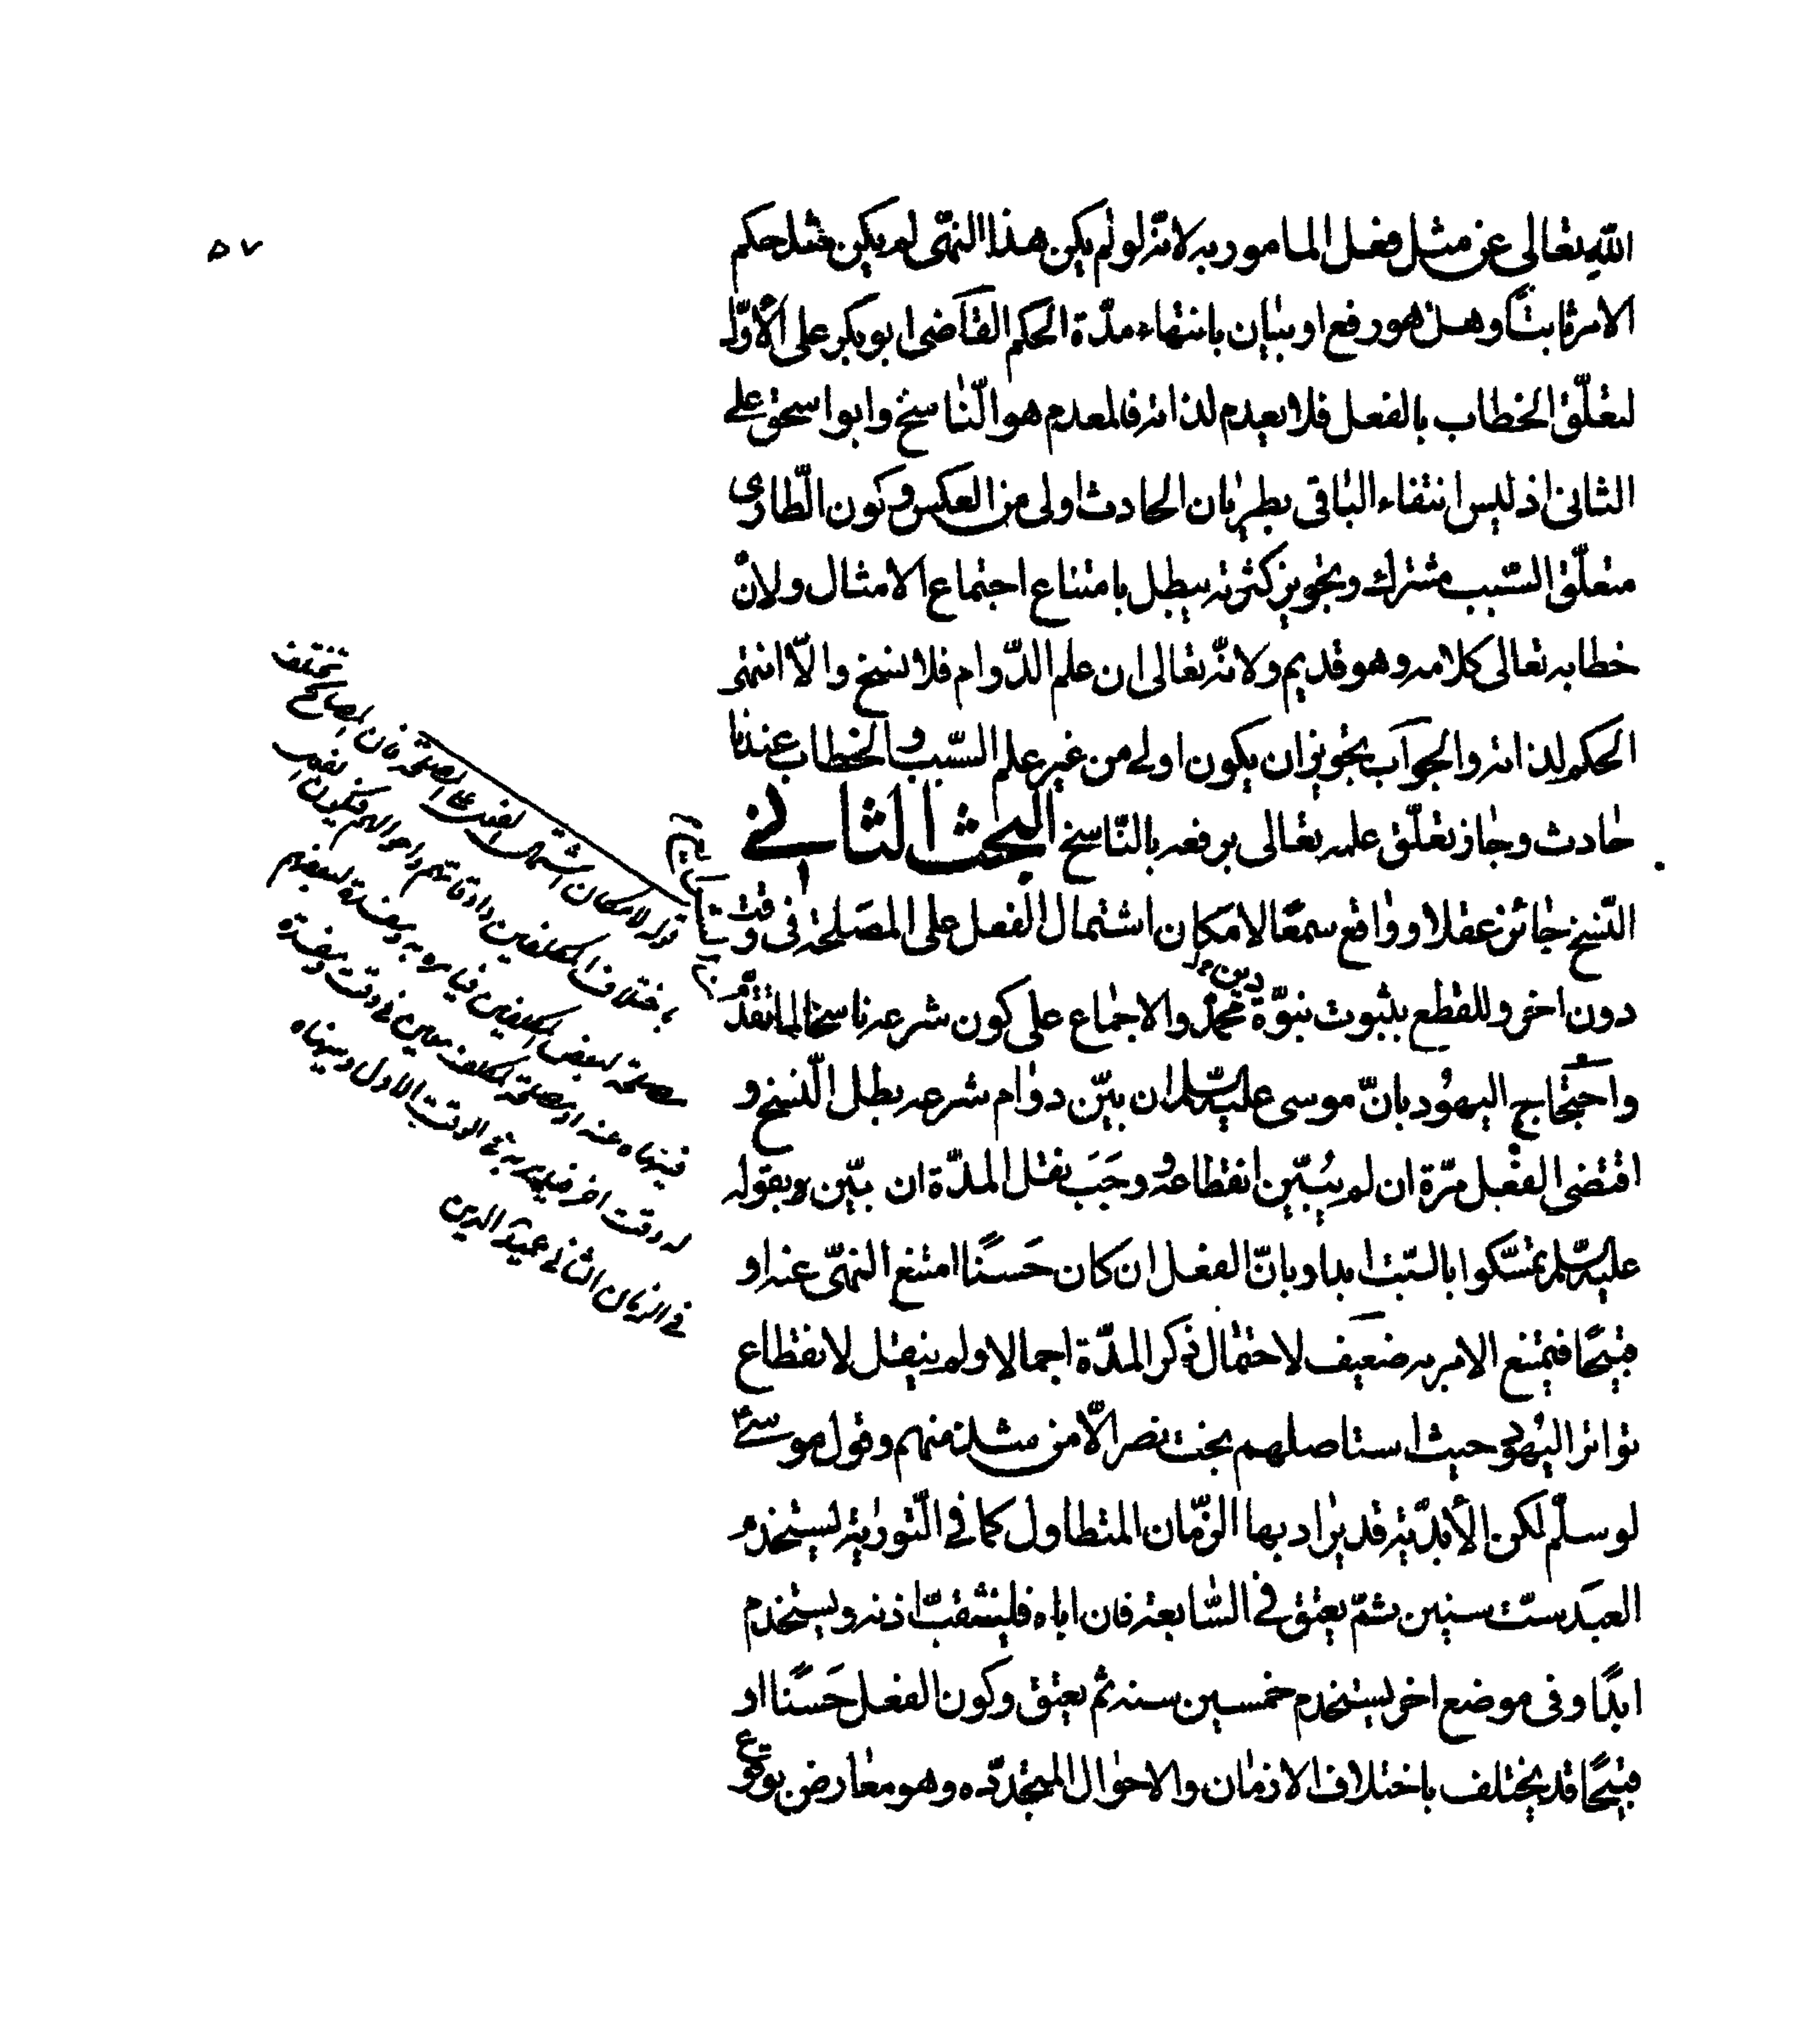 ٥٧
الله تعالى عن مثل فعل المامور به لانه لو لم يكن هذا النهى لم يكن مثل حكم
الامر ثابتا وهل هو رفع او بيان بانتهاء مدّة الحكم القاضى ابو بكر على الأوّل
لتعلّق الخطاب بالفعل فلا يعدم لذاته فالمعدم هو النّاسخ وابو اسحق على
الثانى اذ ليس انتفاء الباقى بطريان الحادث اولى من العكس وكون الطّارى
متعلّق السّبب مشترك وتجويز كثرته يبطل بامتناع اجتماع الامثال ولانّ
خطابه تعالى كلامه وهو قديم ولانّه تعالى ان علم الدّوام فلا نسخ والّا انتهى
الحكم لذاته والجواب بتجويز ان يكون اولى من غير علم السّبب والخطاب عندنا
حادث وجاز تعلّق علمه تعالى برفعه بالنّاسخ البحث الثانى
النّسخ جائز عقلا وواقع سمعًا لامكان اشتمال الفعل على المصلحة فى وقت
دون اخر وللقطع بثبوت نبوّة محمّد والاجماع على كون شرعه ناسخا لما تقدّم
واحتجاج اليهود بانّ موسى عليه السّلم ان بيّن دوام شرعه بطل النّسخ و
اقتضى الفعل مرّة ان لم يُبيّن انقطاعه ووجَبَ نقل المدّة ان بيّن وبقوله
عليه السّلم تمسّكوا بالسّبت ابدا وبانّ الفعل ان كان حَسَنًا امتنع النهى عنه او
قبيحًا فيمتنع الامر به ضعيف لاحتمال ذكر المدّة اجمالا ولم ينقل لانقطاع
تواتر اليهود حيث استاصلهم بخت نصر الّا من شذ منهم وقول موسى
لو سلّم لكن الأبديّة قد يراد بها الزّمان المتطاول كما فى التّورية يستخدم
العبد ستّ سنين ثمّ يعتق فى السّابعة فان اباه فليثقب اذنه ويستخدم
ابدًا وفى موضع اخر يستخدم خمسين سنه ثم يعتق وكون الفعل حَسَنًا او
قبيحًا قد يختلف باختلاف الازمان والاحوال المتجدّده وهو معارض بوقوع
تركه لامكان اشتمال الفعل على المصلحة فان المصالح تختلف
باختلاف المكلفين واوقاتهم واحوالهم فيكون الفعل
مصلحة لبعض المكلفين فيامره به ومفسدة لبعضهم
فينهاه عنه او مصلحة لمكلف معين فى وقت ومفسدة
له وقت اخر فيامره به فى الوقت الاول وينهاه
فى الزمان الثانى عميد الدين